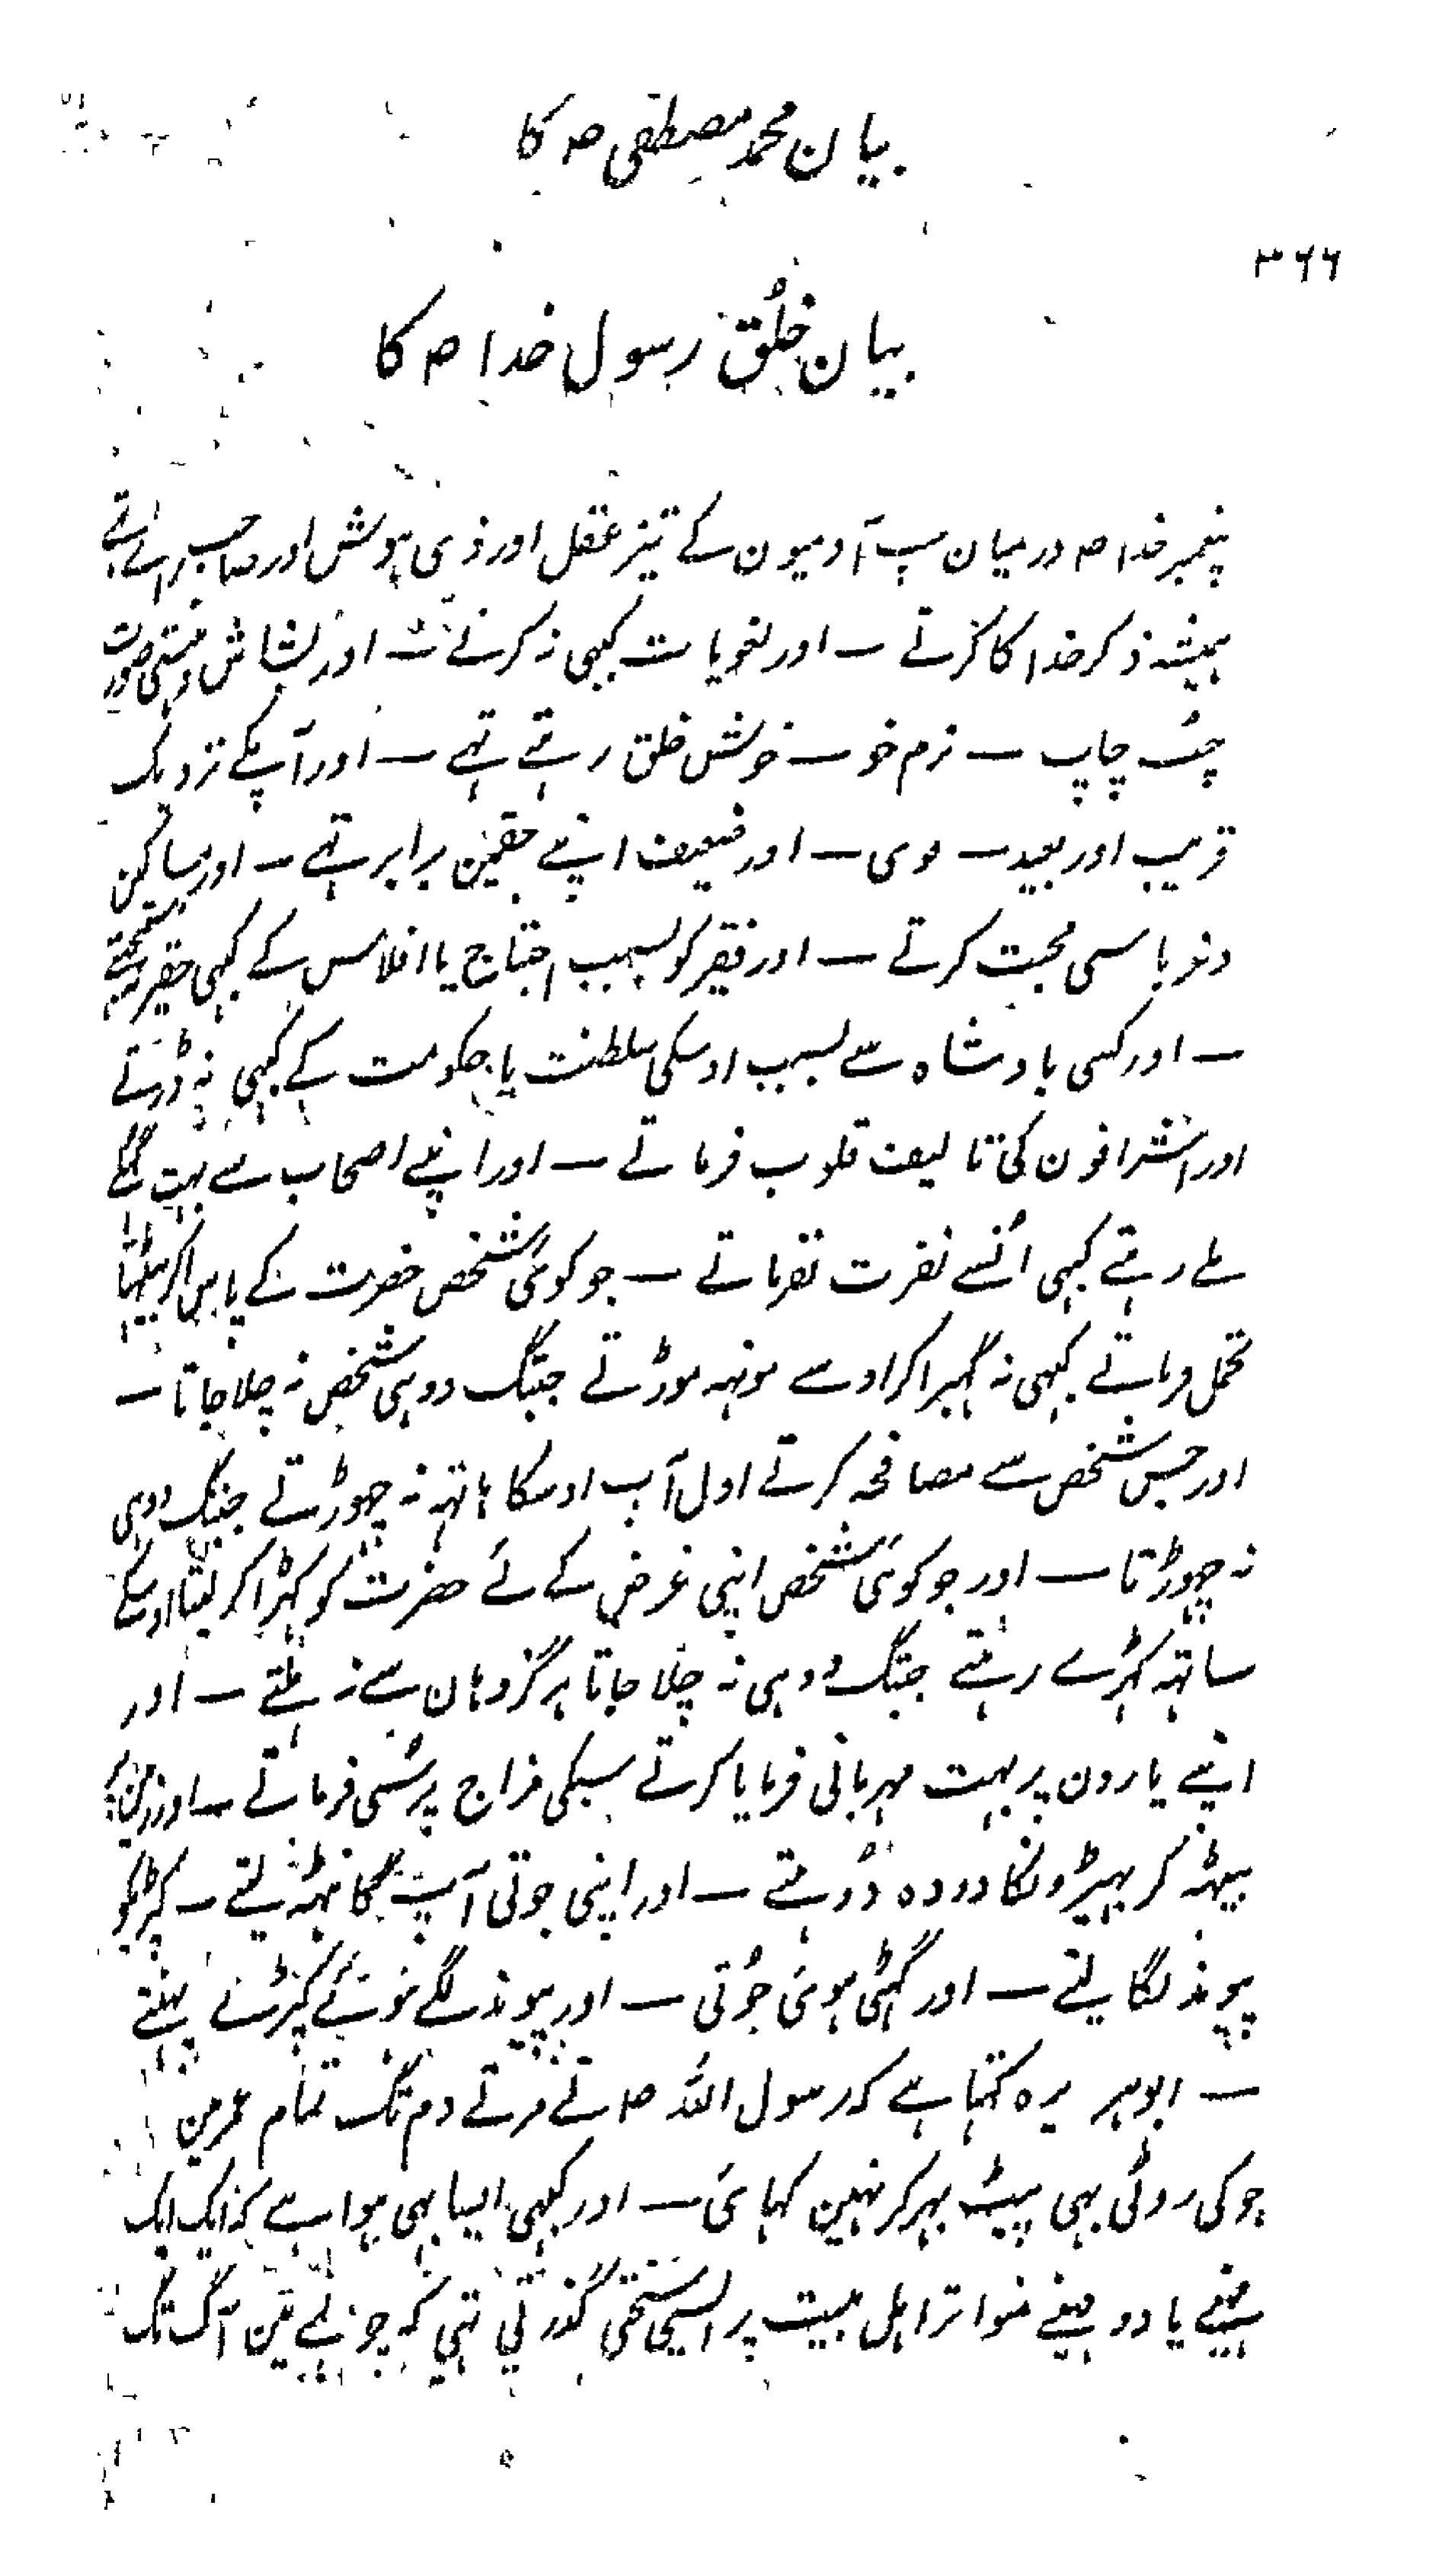 بیان محمد مصطفی ص کا
۳۶۶
بیان خُلق رسول خدا ص کا
پیغمبر خدا ص درمیان سب آدمیون کے تیز عقل اور ذی ہوش اور صاحب راے تہے
ہمیشہ ذکر خدا کا کرتے — اور لغویات کبہی نہ کرتے — اور بشاش ہنستی صورت
چُپ چاپ — نرم خو — خوش خلق رہتے تہے — اور آپکے نزدیک
قریب اور بعید — قوی — اور ضعیف اپنے حقمین برابر تہے — اور مساکین
وغربا سی محبت کرتے — اور فقیر کو بسبب احتیاج یا افلاس کے کبہی حقیر نہ سمجتے
— اور کسی بادشاہ سے بسبب اوسکی سلطنت یا حکومت کے کبہی نہ ڈرتے
اور اشرافون کی تالیف قلوب فرماتے — اور اپنے اصحاب سے بہت لگے
ملے رہتے کبہی اُنسے نفرت نفرماتے — جو کوئی شخص حضرت کے پاس اکر بیٹہتا
تحمل فرماتے کبہی نہ گہبرا کر اوسے مونہہ موڑتے جبتک وہی شخص نہ چلا جاتا —
اور جس شخص سے مصافحہ کرتے اول آپ اوسکا ہاتہہ نہ چہوڑتے جبتک وہی
نہ چہوڑتا — اور جو کوئی شخص اپنی غرض کے لئے حضرت کو کہڑا کر لیتا اوسکے
ساتہہ کہڑے رہتے جبتک وہی نہ چلا جاتا ہرگز وہان سے نہ ہلتے — اور
اپنے یارون پر بہت مہربانی فرمایا کرتے سبکی مزاج پرسُی فرماتے — اور زمین پر
بیٹہہ کر بہیڑونکا دودہ دُوہتے — اور اپنی جوتی آپ گانہٹہ لیتے — کپڑیکو
پیوند لگا لیتے — اور گہٹی ہوئی جُوتی — اور پیوند لگے ہوئے کپڑے پہنتے
— ابوہریرہ کہتا ہے کہ رسول اللہ ص نے مرتے دم تک تمام عمر مین
جو کی روٹی بہی پیٹ بہر کر نہین کہائی — اور کبہی ایسا بہی ہوا ہے کہ ایک ایک
مہینے یا دو مہینے متواتر اہل بیت پر ایسی سختی گذرتی تہی کہ چولہے مین آگ تک